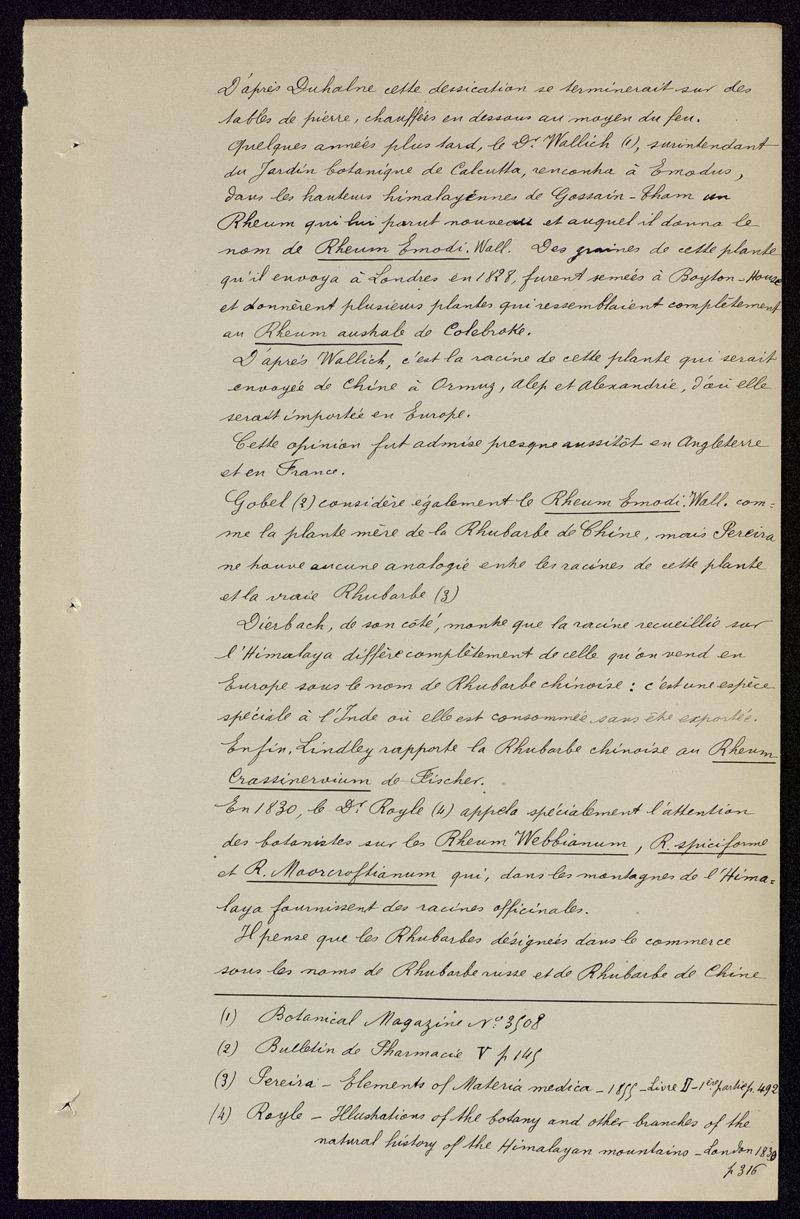 D'après Duhalne cette dessication se terminerait sur des
tables de pierre, chauffées en dessous au moyen du feu.
Quelques années plus tard, le Dr Wallich (1), surintendant
du Jardin botanique de Calcutta, rencontra à Emodus,
dans les hauteurs himalayennes de Gossain-Tham un
Rheum qui lui parut nouveau et auquel il donna le
nom de Rheum Emodi. Wall. Des graines de cette plante
qu'il envoya à Londres en 1828, furent semées à Boyton-House
et donnèrent plusieurs plantes qui ressemblaient complètement
au Rheum australe de Colebroke.
D'après Wallich, c'est la racine de cette plante qui serait
envoyée de Chine à Ormuz, Alep et Alexandrie, d'où elle
serait importée en Europe.
Cette opinion fut admise presque aussitôt en Angleterre
et en France.
Gobel (2) considère également le Rheum Emodi. Wall. com=
me la plante mère de la Rhubarbe de Chine, mais Pereira
ne trouve aucune analogie entre les racines de cette plante
et la vraie Rhubarbe (3)
Dierbach, de son côté, montre que la racine recueillie sur
l'Himalaya diffère complètement de celle qu'on vend en
Europe sous le nom de Rhubarbe chinoise : c'est une espèce
spéciale à l'Inde où elle est consommée sans être exportée.
Enfin, Lindley rapporte la Rhubarbe chinoise au Rheum
Crassinervium de Fischer.
En 1830, le Dr Royle (4) appela spécialement l'attention
des botanistes sur les Rheum Webbianum, R. spiciforme
et R. Moorcroftianum qui, dans les montagnes de l'Hima=
laya fournissent des racines officinales.
Il pense que les Rhubarbes désignées dans le commerce
sous les noms de Rhubarbe russe et de Rhubarbe de Chine
(1) Botanical Magazine No 3508
(2) Bulletin de Pharmacie V p 145
(3) Pereira - Elements of Materia medica - 1855 - Livre II - 1ère partie p. 492
(4) Royle - Illustrations of the botany and other branches of the
natural history of the Himalayan mountains - London 1830
p 316